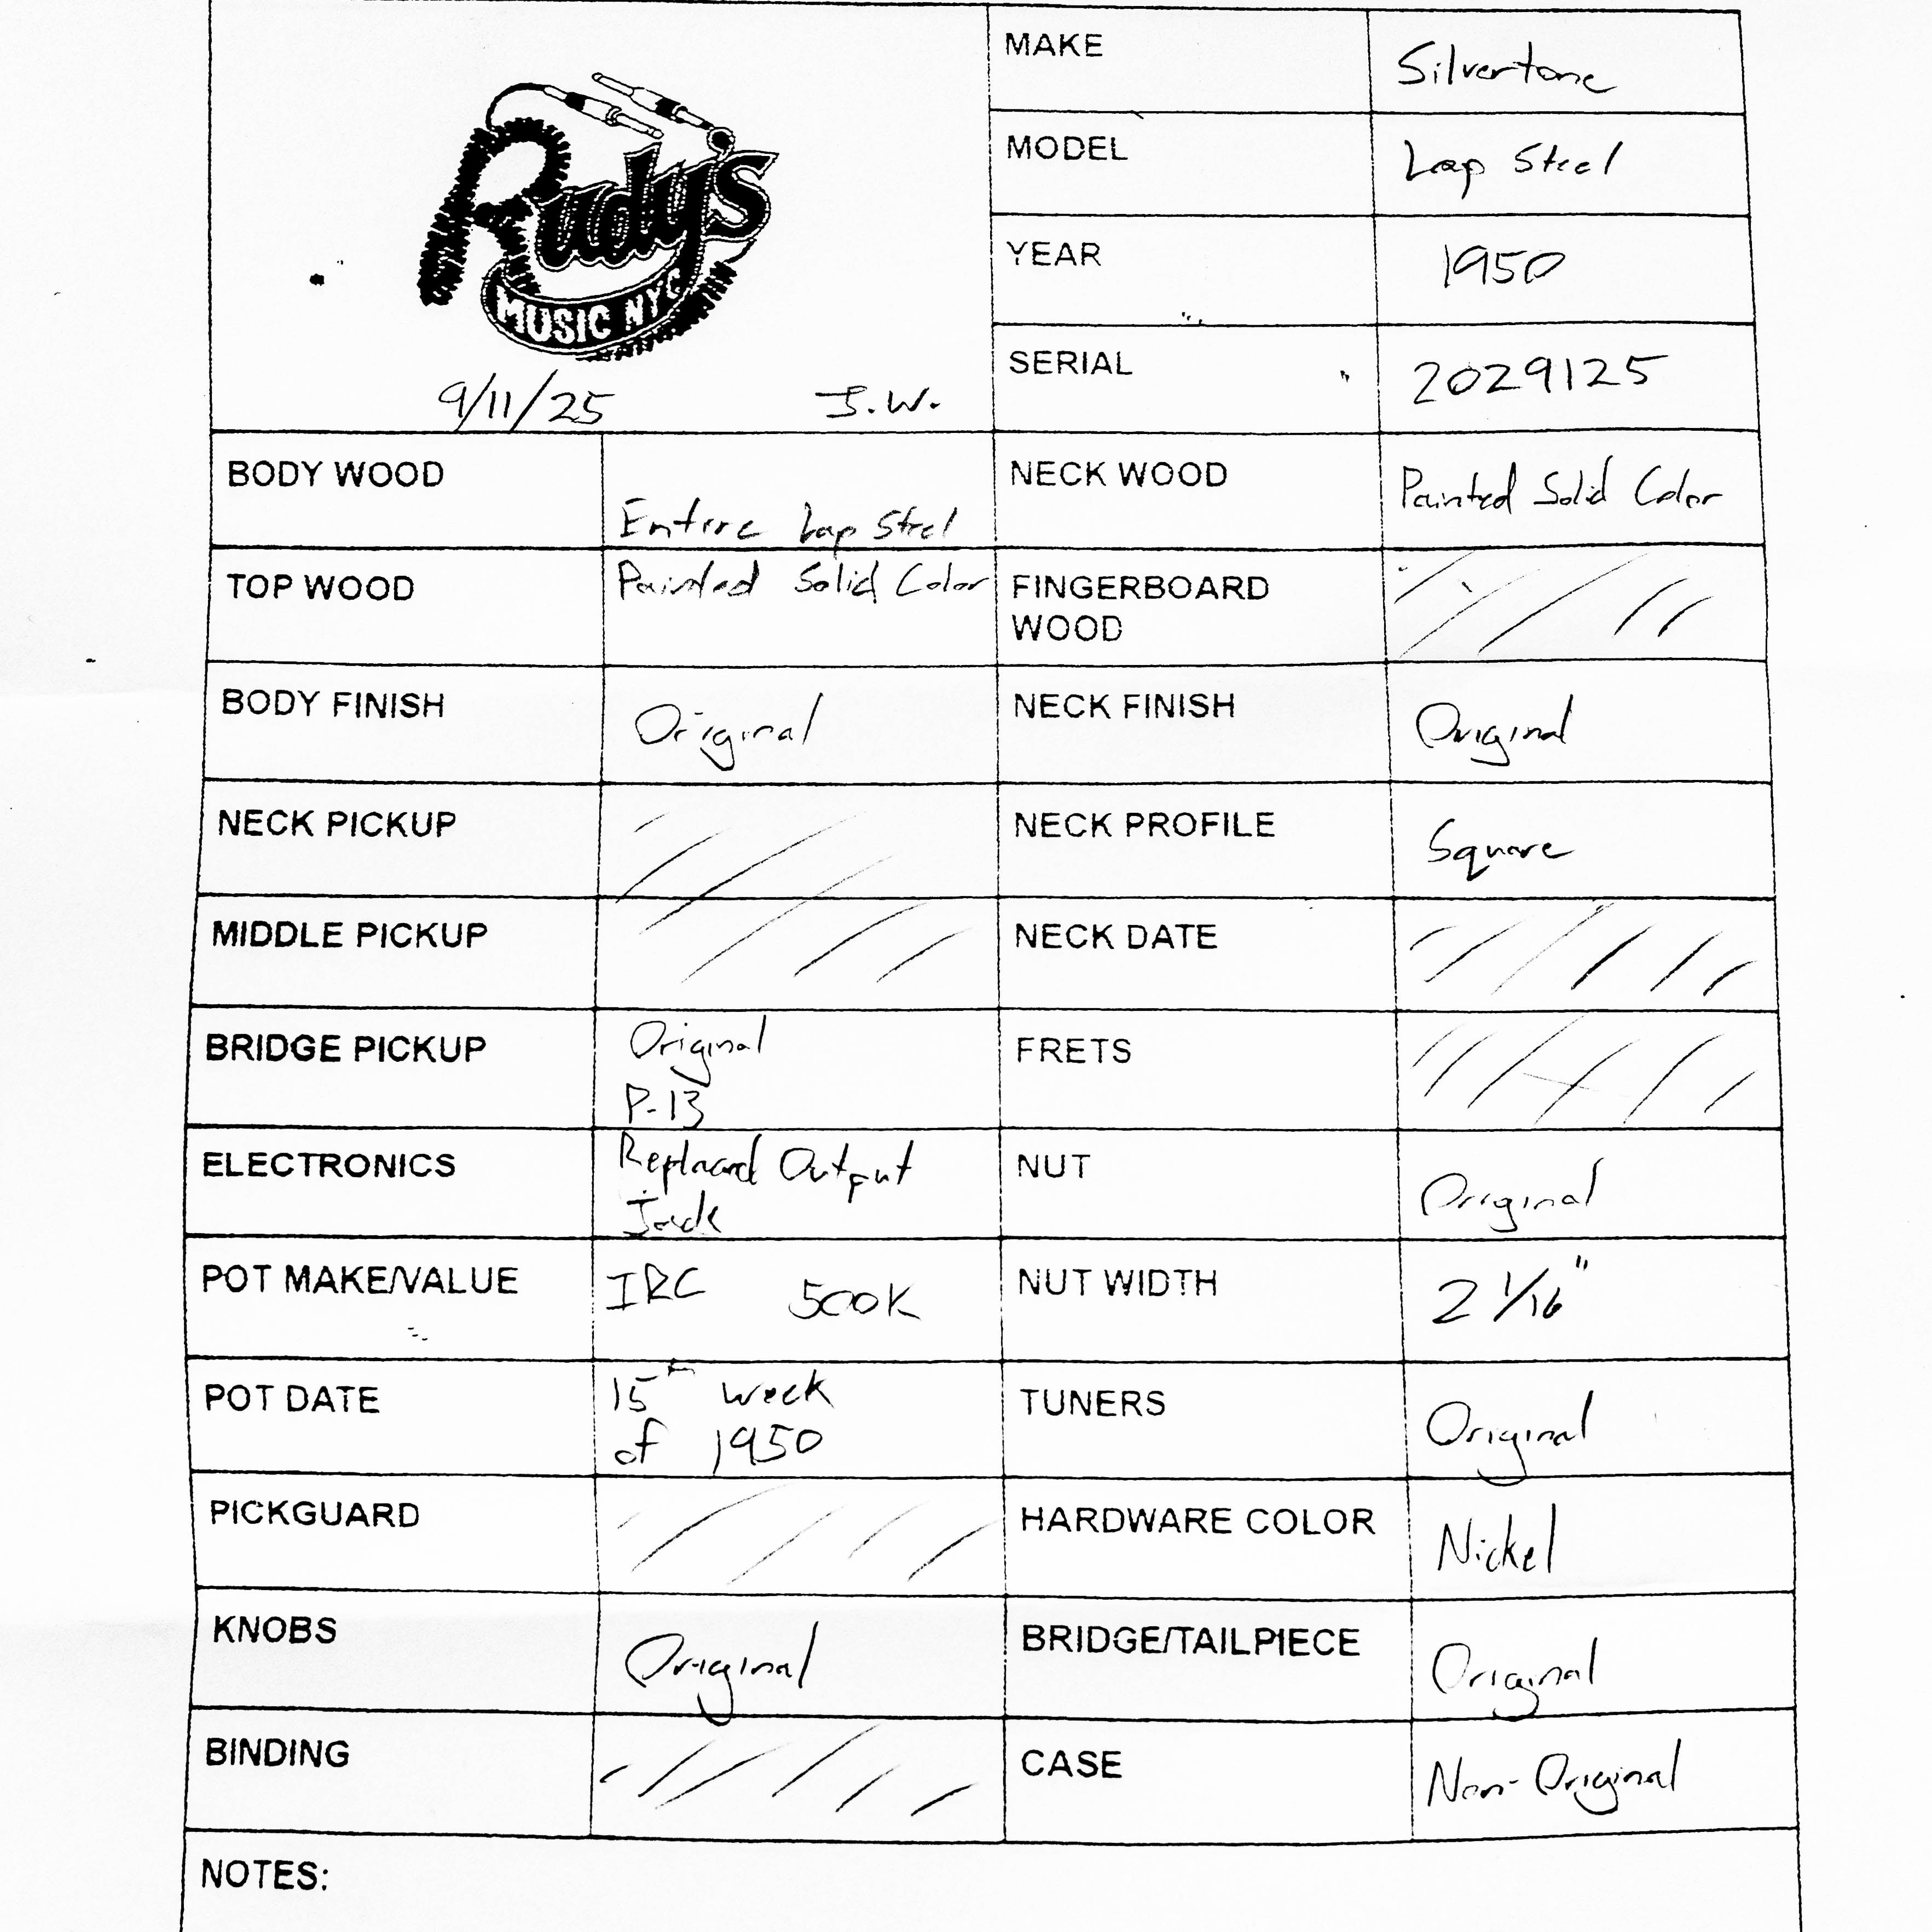 Rudy's
MUSIC NYC
9/11/25 J.W.
MAKE Silvertone
MODEL Lap Steel
YEAR 1950
SERIAL 2029125
BODY WOOD Entire Lap Steel
NECK WOOD Painted Solid Color
TOP WOOD Painted Solid Color
FINGERBOARD
WOOD
BODY FINISH Original
NECK FINISH Original
NECK PICKUP
NECK PROFILE Square
MIDDLE PICKUP
NECK DATE
BRIDGE PICKUP Original
P-13
FRETS
ELECTRONICS Replaced Output
Jack
NUT Original
POT MAKE/VALUE IRC 500K
NUT WIDTH 2 1/16"
POT DATE 15th week
of 1950
TUNERS Original
PICKGUARD
HARDWARE COLOR Nickel
KNOBS Original
BRIDGE/TAILPIECE Original
BINDING
CASE Non-Original
NOTES: